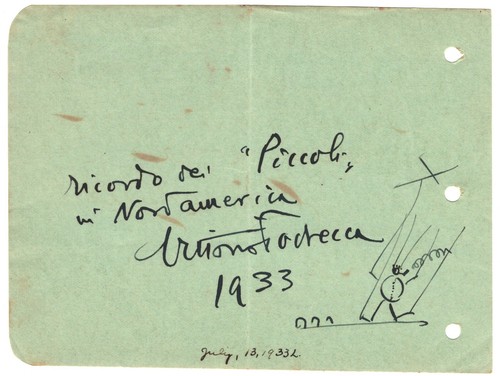 ricordo dei "Piccoli"
in Nordamerica
Vittorio Podrecca
1933
July, 13, 1933